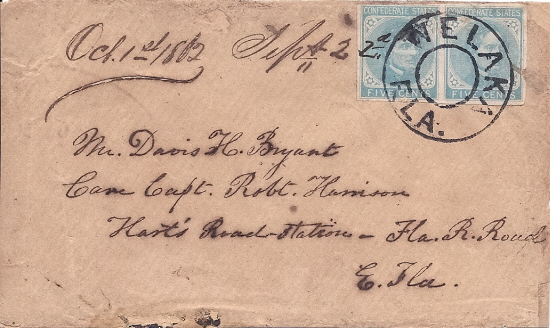 CONFEDERATE STATES CONFEDERATE STATES
FIVE CENTS FIVE CENTS
WELAKA
FLA.
Oct. 1st 1862 Sept 22
Mr. Davis H. Bryant
Care Capt. Robt. Harrison
Hart's Road Station – Fla. R. Road
E. Fla.